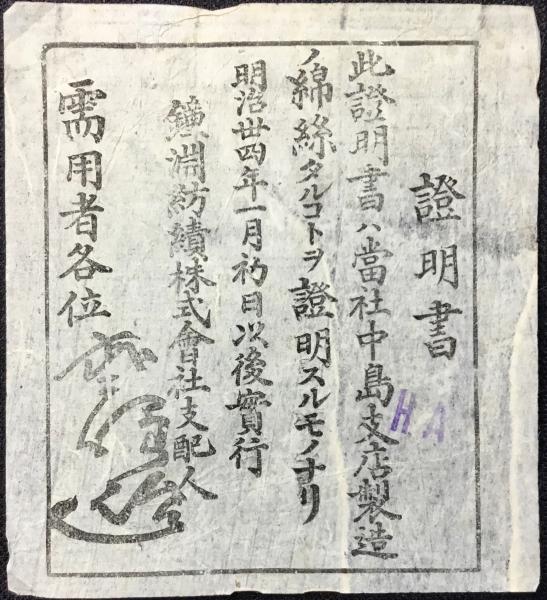 證明書
此證明書ハ當社中島支店製造
ノ綿絲タルコトヲ證明スルモノナリ
明治丗四年一月初日以後實行
鐘淵紡績株式會社支配人
需用者各位
HA